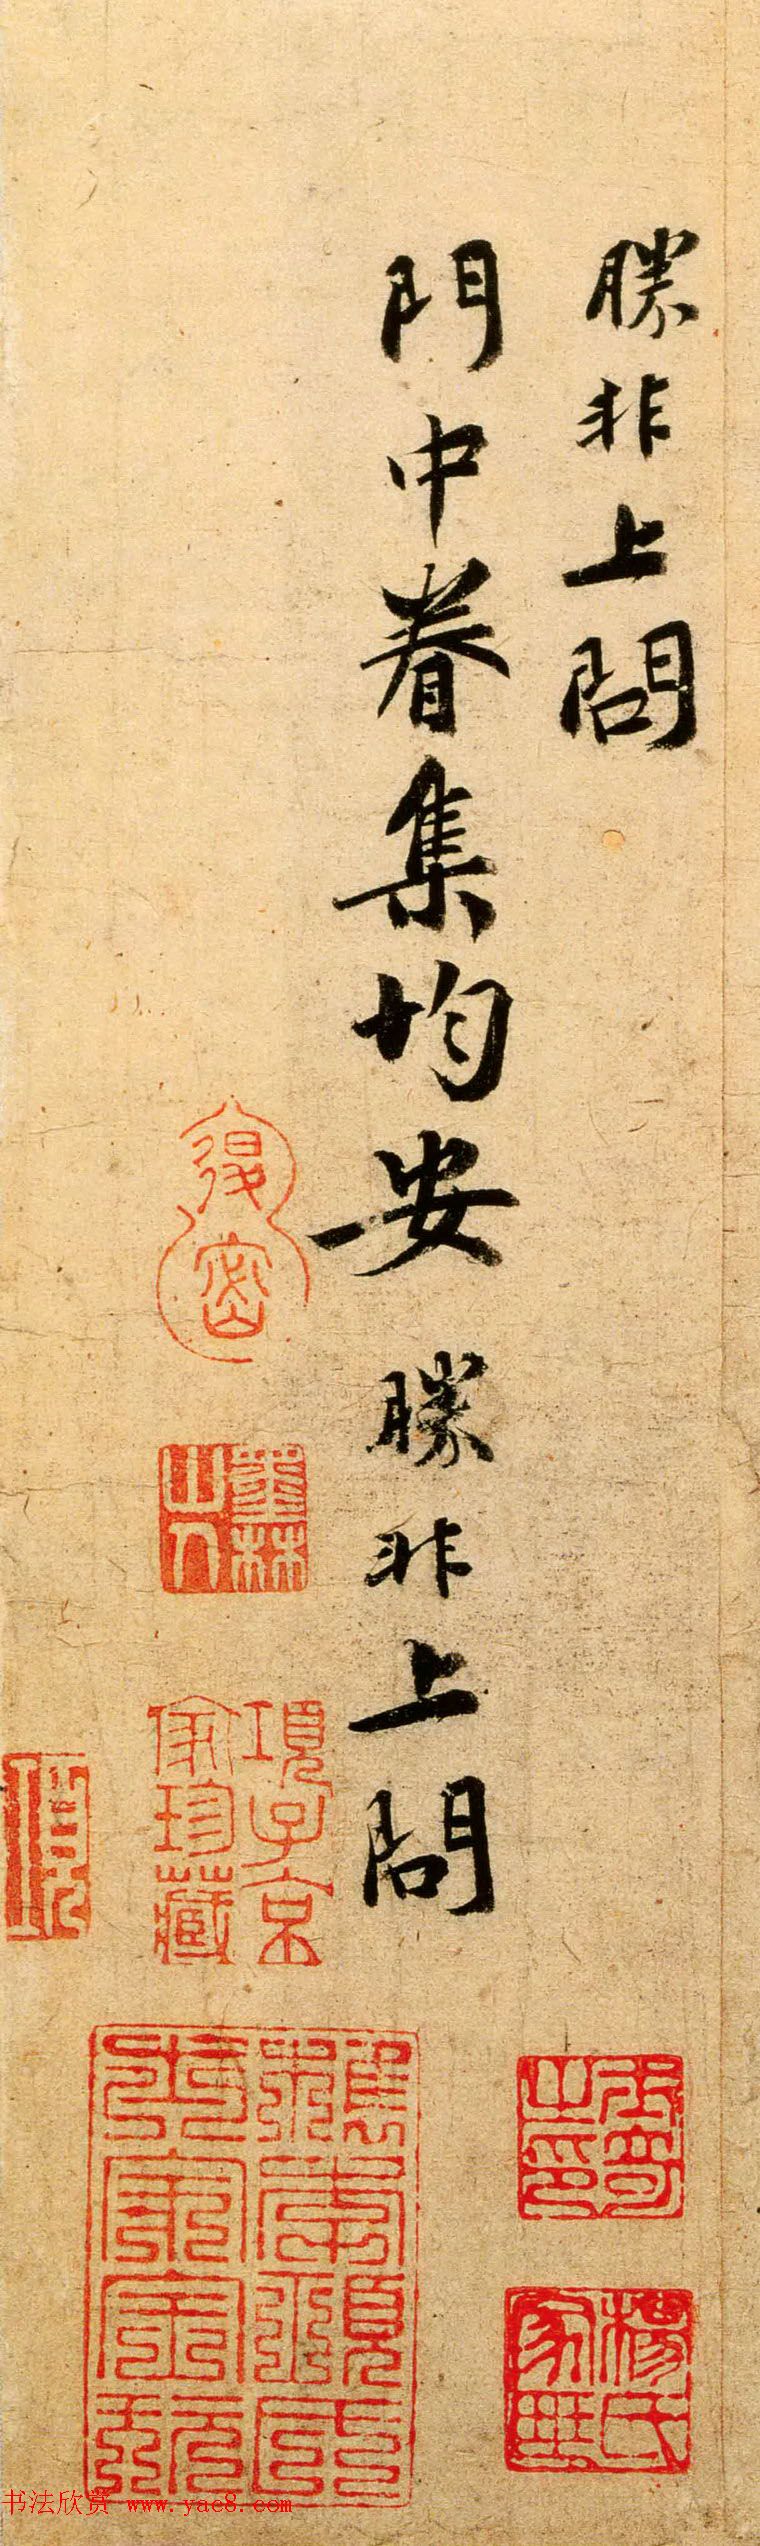 勝非上問
門中眷集均安 勝非上問
墨林
山人
項子京
家珍藏
楊氏
家藏
書法欣赏 www.yac8.com